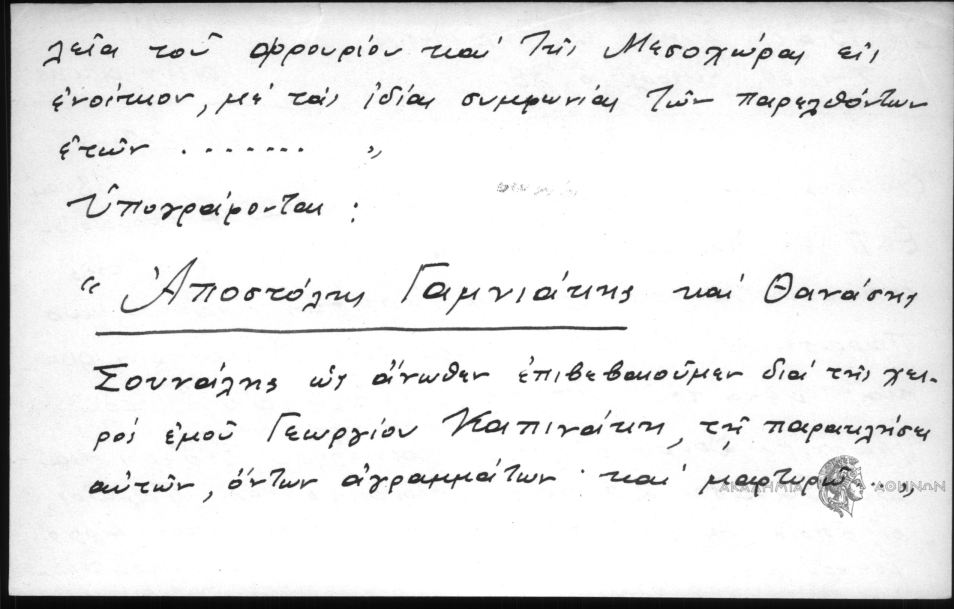 λεῖα τοῦ φρουρίου καὶ τῆς Μεσοχώρας εἰς
ἐνοίκιον, μὲ τὰς ἰδίας συμφωνίας τῶν παρελθόντων
ἐτῶν ........ "
Ὑπογράφονται :
" Ἀποστόλης Γαμνιάκης καὶ Θανάσης
Σουνάλης ὡς ἄνωθεν ἐπιβεβαιοῦμεν διὰ τῆς χει-
ρός ἐμοῦ Γεωργίου Καπινάκη, τῇ παρακλήσει
αὐτῶν, ὄντων ἀγραμμάτων · καὶ μαρτυρῶ ... "
ΑΚΑΔΗΜΙΑ ΑΘΗΝΩΝ